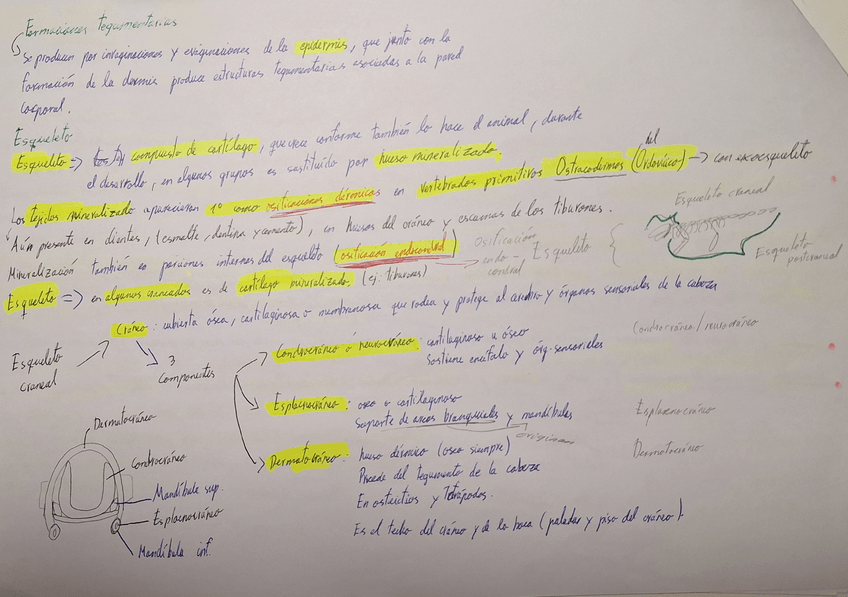 Formaciones tegumentarias
Se producen por invaginaciones y evaginaciones de la epidermis, que junto con la
formación de la dermis produce estructuras tegumentarias asociadas a la pared
corporal.
Esqueleto
Esqueleto => compuesto de cartílago, que crece conforme también lo hace el animal, durante
el desarrollo, en algunos grupos es sustituido por hueso mineralizado.
Los tejidos mineralizado aparecieron 1º como osificaciones dérmicas en vertebrados primitivos Ostracodermos (del Ordovícico) -> con exoesqueleto
Aún presente en dientes, (esmalte, dentina y cemento), en huesos del cráneo y escamas de los tiburones.
Mineralización también en porciones internas del esqueleto (osificación endocondral)
Osificación
endo-
condral
Esqueleto {
Esqueleto craneal
Esqueleto
postcraneal
Esqueleto => en algunos craneados es de cartílago mineralizado. (ej: tiburones)
Cráneo: cubierta ósea, cartilaginosa o membranosa que rodea y protege al cerebro y órganos sensoriales de la cabeza
Esqueleto
craneal
3
Componentes
Condrocráneo o neurocráneo: cartilaginoso u óseo
Sostiene encéfalo y órg. sensoriales
Condrocráneo/neurocráneo
Esplacnocráneo: óseo o cartilaginoso
Soporte de arcos branquiales y mandíbulas
originan
Esplacnocráneo
Dermatocráneo: hueso dérmico (óseo siempre)
Procede del tegumento de la cabeza
En osteictios y Tetrápodos.
Es el techo del cráneo y de la boca (paladar y piso del cráneo).
Dermatocráneo
Dermatocráneo
Condrocráneo
Mandíbula sup.
Esplacnocráneo
Mandíbula inf.